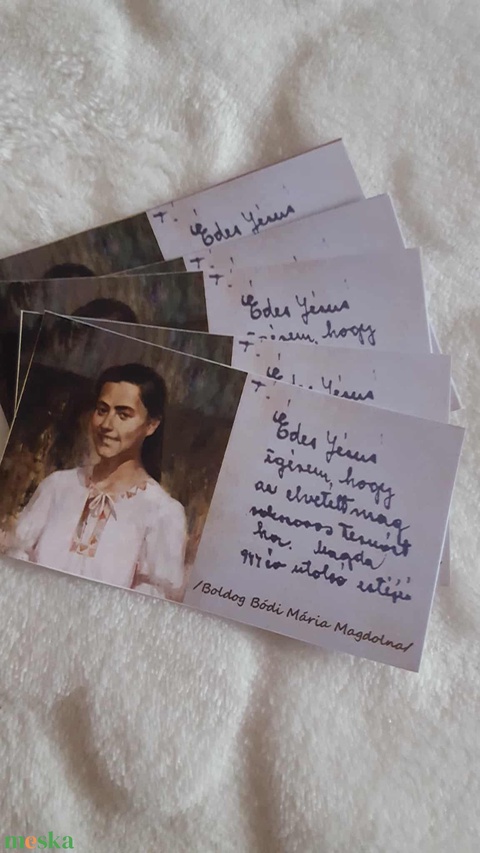 Édes Jésus
Édes Jésus
igérem, hogy
Édes Jésus
Édes Jésus
igérem, hogy
az elvetett mag
sokszoros termést
hoz. Magda
944 év utolsó estéje
/Boldog Bódi Mária Magdolna/
meska